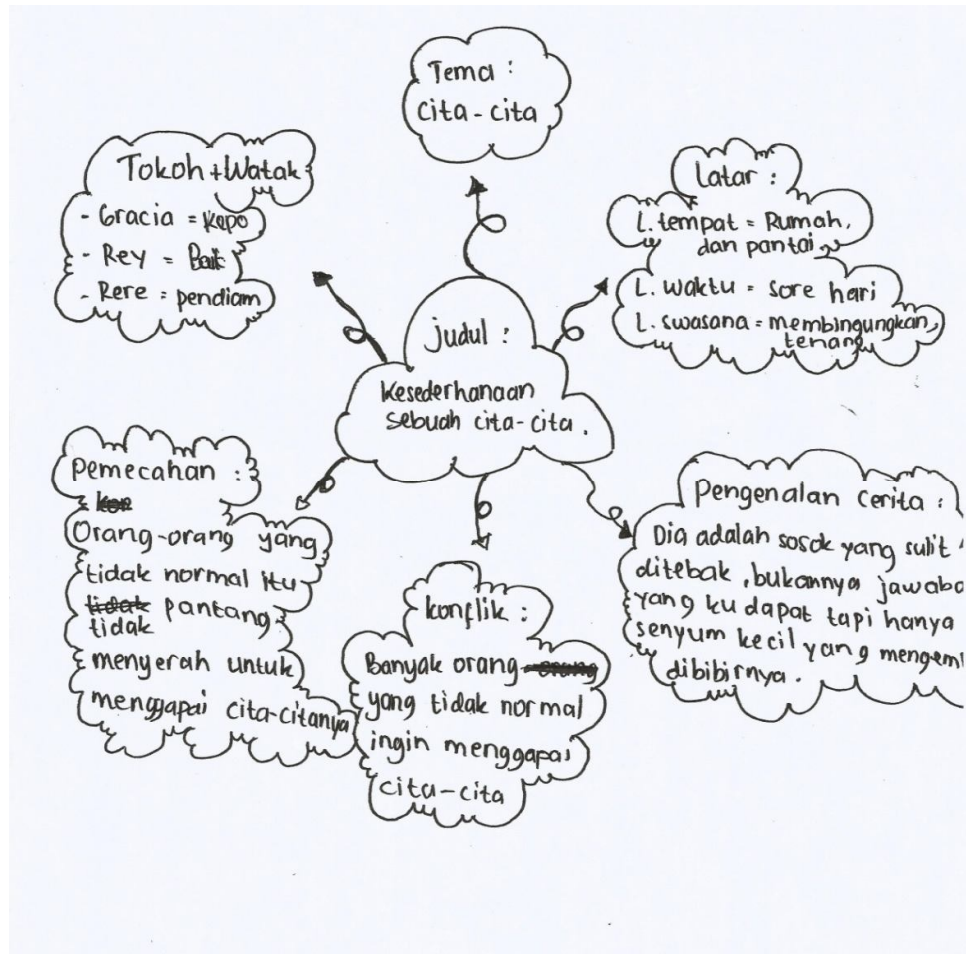 Tema :
cita-cita
Tokoh + Watak
- Gracia = Kepo
- Rey = Baik
- Rere = pendiam
Latar :
L. tempat = Rumah,
dan pantai
L. waktu = sore hari
L. swasana = membingungkan,
tenang
judul :
Kesederhanaan
sebuah cita-cita.
Pemecahan :
Orang-orang yang
tidak normal itu
tidak pantang
tidak
menyerah untuk
menggapai cita-citanya
konflik :
Banyak orang orang
yang tidak normal
ingin menggapai
cita-cita
Pengenalan Cerita :
Dia adalah sosok yang sulit
ditebak, bukannya
yang ku dapat tapi hanya
senyum kecil yang
dibibirnya.